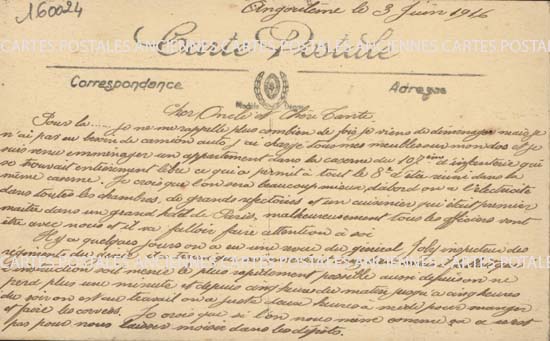 160024
Angoulême le 3 Juin 1916
CARTES POSTALES ANCIENNES CARTES POSTALES ANCIENNES CARTES POSTALES ANCIENNES
Carte Postale
Correspondance Adresse
Modèle Déposé
Cher Oncle et Chère Tante.
Pour la ..... je ne me rappelle plus combien de fois je viens de déménager mais je
n'ai pas eu besoin de camion auto j'ai chargé tous mes meubles sur mon dos et je
suis venu emménager un appartement dans la caserne du 107ème d'infanterie qui
se trouvait entièrement libre ce qui a permit à tout le 8e d'être réuni dans la
même caserne. Je crois que l'on sera beaucoup mieux d'abord on a l'électricité
dans toutes les chambres, de grands réfectoires et un cuisinier qui était premier
maître dans un grand hôtel de Paris, malheureusement tous les officiers vont
être avec nous et il va falloir faire attention à soi
Il y a quelques jours on a eu une revue du général Joly inspecteur des
instruction soit menée le plus rapidement possible aussi depuis on ne
perd plus une minute et depuis cinq heures du matin jusqu'à cinq heures
du soir on est au travail on a juste deux heures à midi pour manger
et faire les corvées. Je crois que si l'on nous mène comme ça ce n'est
pas pour nous laisser moisir dans les dépôts.